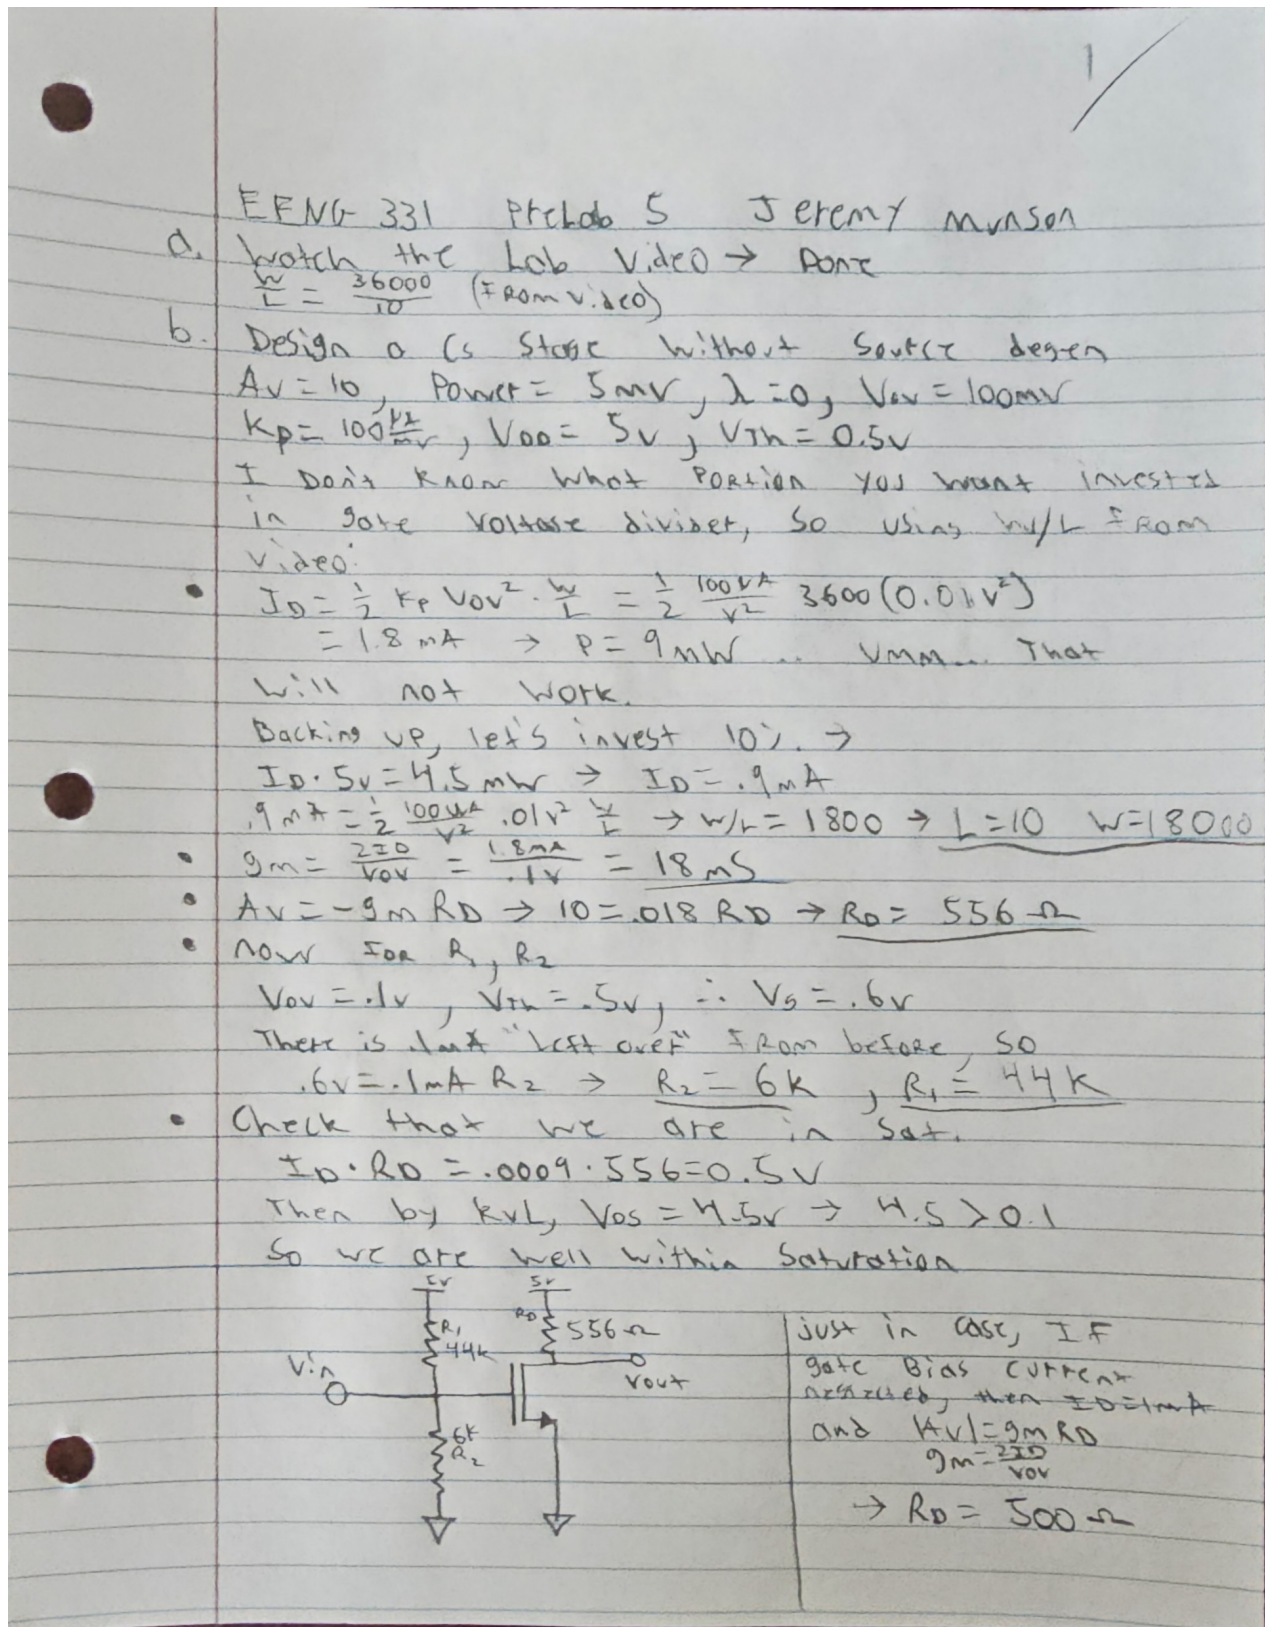 1
EENG 331 PreLab 5 Jeremy Munson
a. Watch the Lab Video → Done
W/L = 36000/10 (From video)
b. Design a CS Stage without Source degen
Av = 10, Power = 5mV, λ = 0, Vov = 100mV
Kp = 100, VDD = 5v, VTh = 0.5v
I Don't know what Portion you want invested
in gate voltage divider, so using W/L From
video:
• ID = 1/2 Kp Vov² · W/L = 1/2 100uA/V² 3600(0.01v²)
= 1.8 mA → P = 9mW ... Umm... That
will not work.
Backing up, let's invest 10% →
ID · 5v = 4.5 mW → ID = .9mA
.9mA = 1/2 100uA/V² .01v² W/L → W/L = 1800 → L=10 W=18000
• gm = 2ID/Vov = 1.8mA/.1v = 18mS
• Av = -gm RD → 10 = .018 RD → RD = 556 Ω
• now For R1, R2
Vov = .1v, VTh = .5v, ∴ VG = .6v
There is .1mA "left over" From before, so
.6v = .1mA R2 → R2 = 6K, R1 = 44K
• Check that we are in Sat.
ID · RD = .0009 · 556 = 0.5V
Then by KVL, VDS = 4.5v → 4.5 > 0.1
So we are well within Saturation
5v 5v
R1 44K
RD 556 Ω
Vin
Vout
6K R2
just in case, IF
gate Bias current
neglected, then ID = 1mA
and |Av| = gm RD
gm = 2ID/Vov
→ RD = 500 Ω